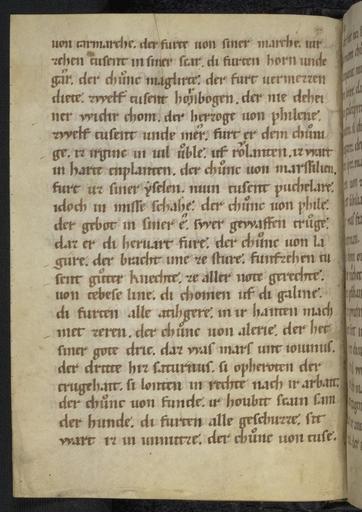 uon carmarche. der furte uon siner marche. uir
zehen tusent in siner scar. di furten horn unde
gür. der chůnc maglirte. der furt uermezzen
diete. zwelf tusent hornbogen. der nie dehei
ner widir chom. der herzoge uon philene.
zwelf tusent unde mer. furt er dem chuni
ge. iz irginc in uil ůble. uf rolanten. iz wart
in harte enplanten. der chůnc uon marsilien.
furt uz siner yselen. niun tusent puchelare.
idoch in misse schahe. der chůnc uon phile.
der gebot in siner e. swer gewaffen trůge.
daz er di heruart fure. der chůnc uon la
gure. der bracht ime ze sture. funfzehen tu
sent gůter knechte. ze aller note gerechte.
uon tebese line. di chomen uf di galine.
di furten alle atihgere. in ir hanten mach
met zeren. der chůnc uon alerie. der het
siner gote drie. daz was mars unt iouinus.
der dritte hiz saturnus. si opheroten der
trugehait. si lonten in rechte nach ir arbait.
der chůnc uon funde. ir houbit scain sam
der hunde. di furten alle geschurze. sit
wart iz in unnutze. der chůnc uon tuse.